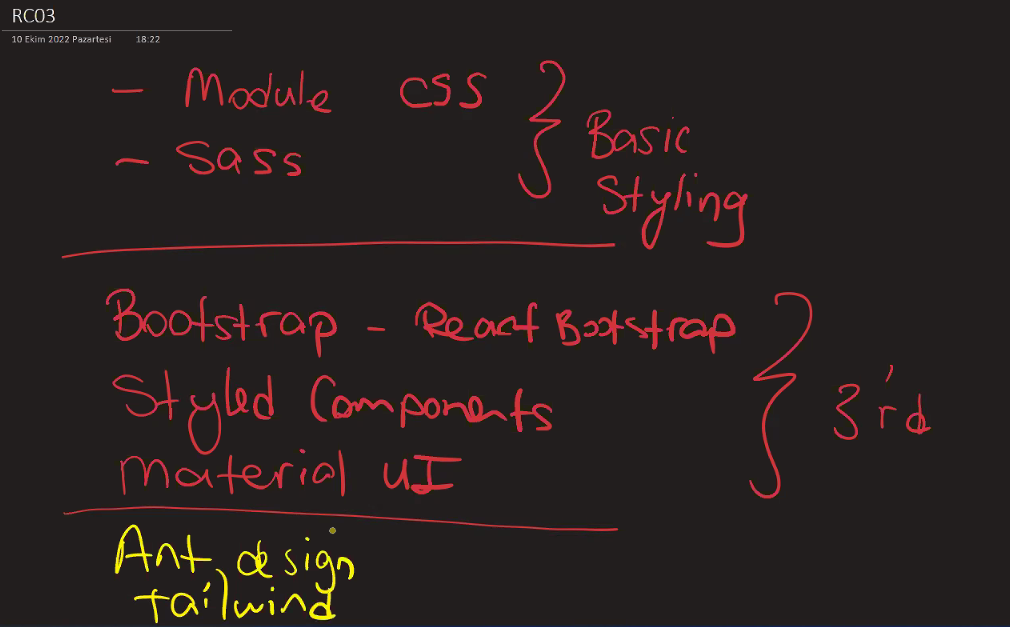 RC03
10 Ekim 2022 Pazartesi 18:22
- Module CSS
- Sass
Basic
Styling
Bootstrap - React Bootstrap
Styled Components
Material UI
3'rd
Ant design
tailwind